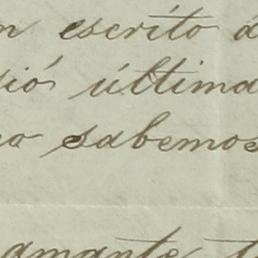 n escrito a
sió última
o sabemos
amante t